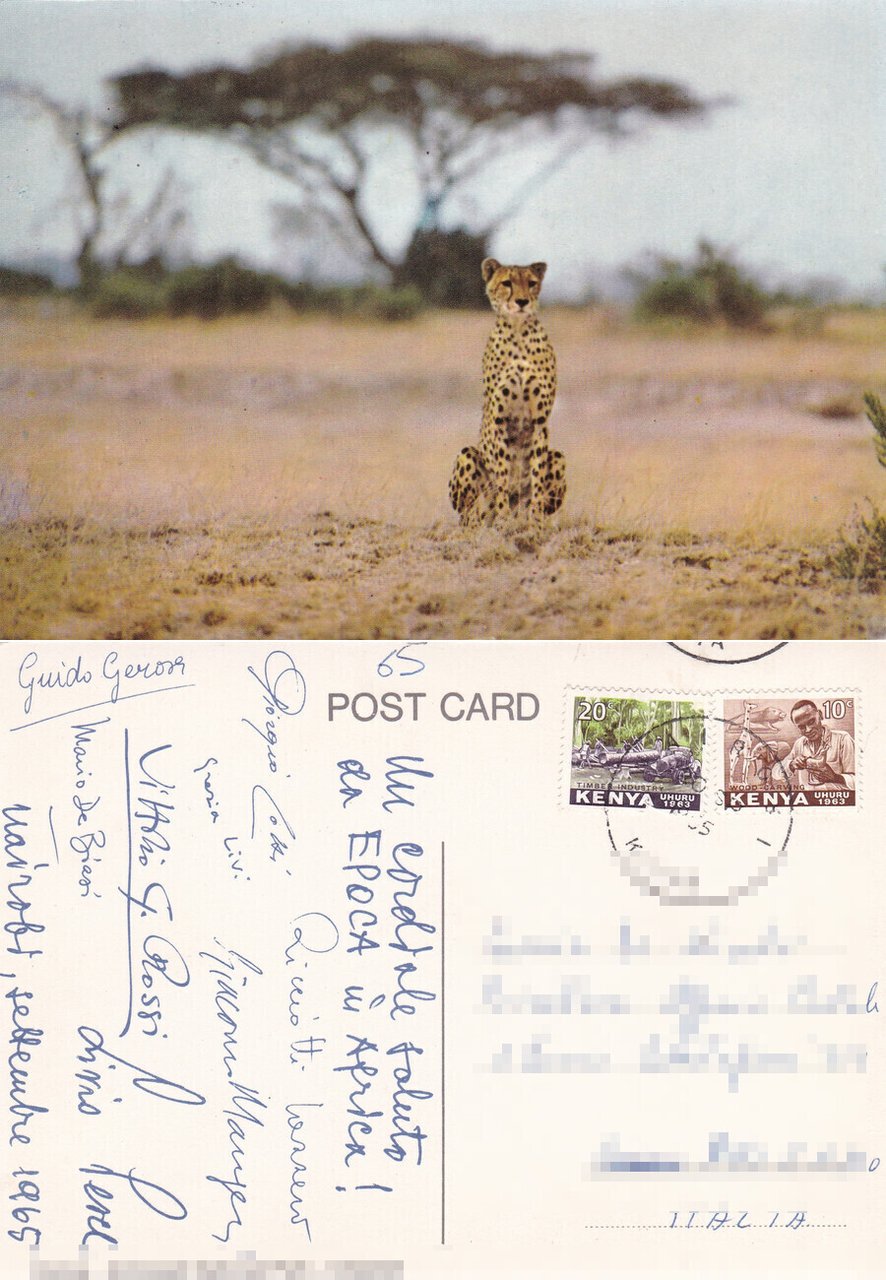 Guido Gerosa
65
POST CARD
20c
TIMBER INDUSTRY
KENYA UHURU 1963
10c
WOOD-CARVING
KENYA UHURU 1963
Un cordiale saluto
da EPOCA in Africa!
Giorgio
Ricciotti
Grazia Livi
Giacomo
Vittorio G. Rossi
Mario De Biasi
Livio
Nairobi, settembre 1965
ITALIA